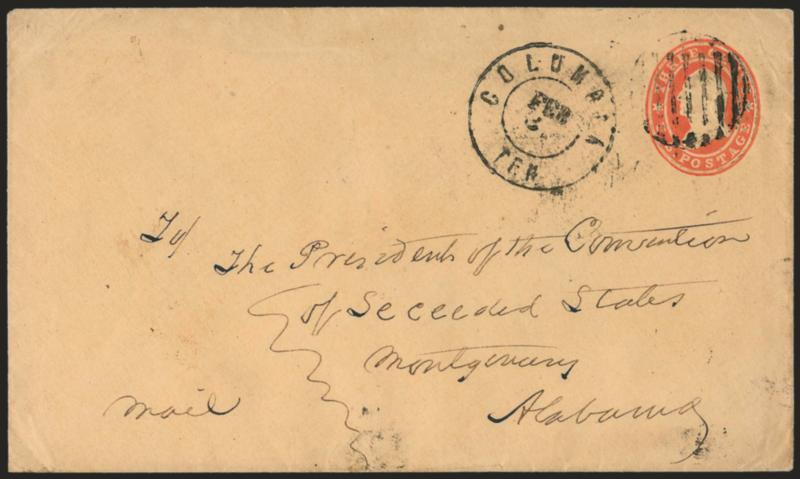 COLUMBIA
FEB
TEN.
THREE
U.S. POSTAGE
To/
The President of the Convention
of Seceeded States
Montgomery
Mail
Alabama